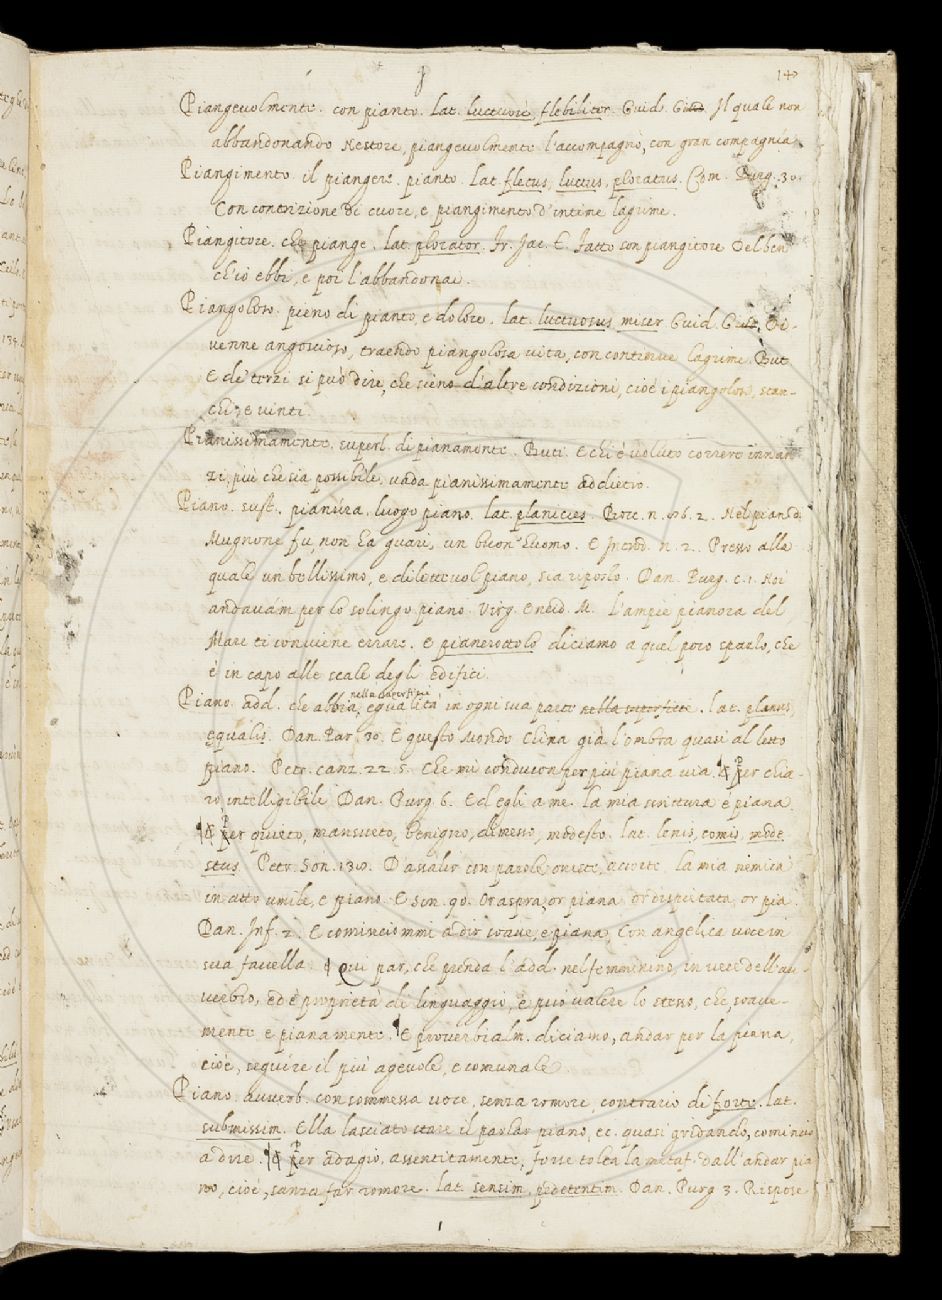 14
Piangevolmente. con pianto. lat. luctuose, flebiliter. Guid. Giud. Il quale non
abbandonando Nestore, piangevolmente l'accompagnò, con gran compagnia.
Piangimento. il piangere. pianto. lat. fletus, luctus, ploratus. Com. Purg. 30.
Con contrizione di cuore, e piangimento d'intime lagrime.
Piangitore. che piange. lat. plorator. Fr. Jac. T. Fatto son piangitore Del ben
ch'io ebbi, e poi l'abbandonai.
Piangoloso. pieno di pianto, e dolore. lat. luctuosus, miser Guid. Giud. Di-
venne angoscioso, traendo piangolosa vita, con continue lagrime. But
E de' terzi si può dire, che sieno d'altre condizioni, cioè i piangolosi, stan-
chi, e vinti.
Pianissimamente. superl. di pianamente. Buti. E chi è voluto correre innan-
zi, più che sia possibile, vada pianissimamente addietro.
Piano. sust. pianura, luogo piano. lat. planicies. Bocc. n. 76. 2. Nel pian di
Mugnone fu, non ha guari, un buon huomo. E Introd. n. 2. Presso alla
quale un bellissimo, e dilettevol piano, sia riposto. Dan. Purg. c. 1. Noi
andavám per lo solingo piano. Virg. Eneid. M. L'ampie pianora del
Mare ti conviene errare. E pianerottolo diciamo a quel poco spazio, che
è in capo alle scale degli edifici.
nella superficie
Piano. add. che abbia egualità in ogni sua parte nella superficie. lat. planus,
equalis. Dan. Par. 30. E questo Mondo China già l'ombra quasi al letto
piano. Petr. canz. 22. 5. Che mi conducon per più piana via. ¶ Per chia-
ro intelligibile Dan. Purg. 6. Ed egli a me. la mia scrittura è piana.
¶ Per quieto, mansueto, benigno, dimesso, modesto. lat. lenis, comis, mode-
stus. Petr. Son. 130. D'assalir con parole oneste, accorte la mia nemica
in atto umile, e piano. E Son. 90. Or aspra, or piana or dispietata, or pia.
Dan. Inf. 2. E cominciommi a dir soave, e piana, Con angelica voce in
sua favella. ¶ Qui par, che prenda l'add. nel femminino, in vece dell'av-
verbio, ed è proprietà di linguaggio, e può valere lo stesso, che soave-
mente e pianamente. ¶ E proverbialm. diciamo, andar per la piana,
cioè, seguire il più agevole, e comunale.
Piano. Avverb. con sommessa voce, senza romore, contrario di forte. lat.
submissim. Ella lasciato stare il parlar piano, ec. quasi gridando, cominciò
a dire. ¶ Per adagio, assentitamente, forse tolta la metaf. dall'andar pia-
no, cioè, sanza far romore. lat. sensim, pedetentim. Dan. Purg. 3. Rispose